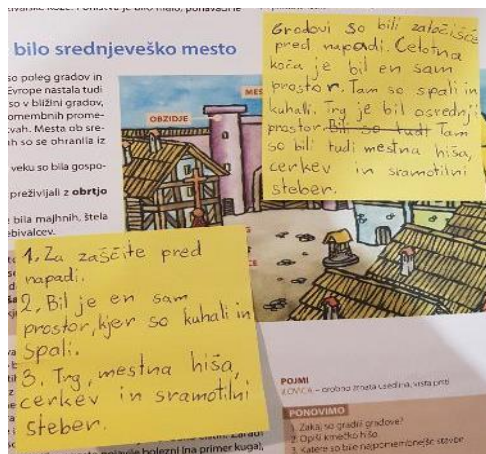 bilo srednjeveško mesto
so poleg gradov in
Evrope nastala tudi
so v bližini gradov,
omembnih prome-
vah. Mesta ob sre-
h so se ohranila iz
veku so bila gospo-
preživljali z obrtjo
bila majhnih, štela
ebivalcev.
OBZIDJE
MES
Gradovi so bili zatočišče
pred napadi. Celotna
koča je bil en sam
prostor. Tam so spali in
kuhali. Trg je bil osrednji
prostor. Bili so tudi Tam
so bili tudi mestna hiša,
cerkev in sramotilni
steber.
1. Za zaščite pred
napadi.
2. Bil je en sam
prostor, kjer so kuhali in
spali.
3. Trg, mestna hiša,
cerkev in sramotilni
steber.
POJMI
ILOVICA – drobno zrnata usedlina, vrsta prsti
PONOVIMO
1. Zakaj so gradili gradove?
2. Opiši kmečko hišo.
3. Katere so bile najpomembnejše stavbe
bolezni (na primer kuga),